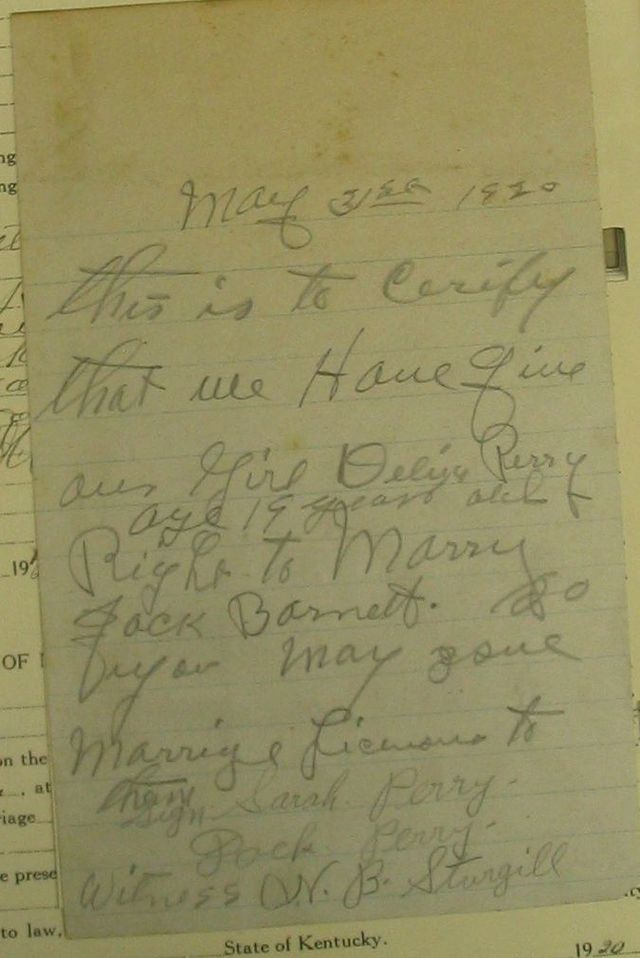 ng
ng
May 31st 1920
this is to Cerify
that we Have Give
our Girl Deliya Perry
age 19 years old
Right to Marry
Jack Barnett. So
you May
Marrige to
them
Sign Sarah Perry.
Perry.
Witness W. B. Sturgill
191
OF
on the
, at
riage
e prese
to law,
State of Kentucky.
1920